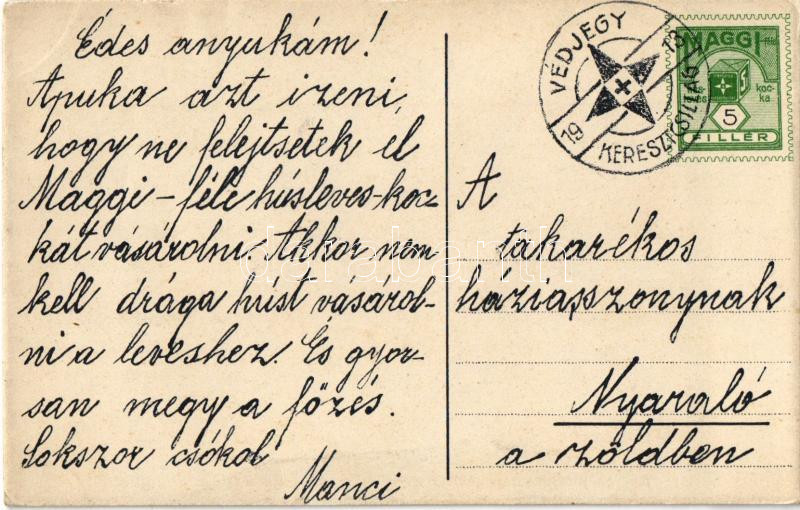 Édes anyukám!
Apuka azt izeni,
hogy ne felejtsetek el
Maggi-féle húsleves-koc-
kát vásárolni. Akkor nem
kell drága húst vásárol-
ni a leveshez. És gyor-
san megy a főzés.
Sokszor csókol
Manci
VÉDJEGY
19 13
KERESZTCSILLAG
MAGGI
koc-
ka
5
FILLÉR
A
takarékos
háziasszonynak
Nyaraló
a zöldben
darabanth